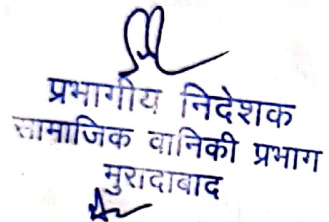 प्रभागीय निदेशक
सामाजिक वानिकी प्रभाग
मुरादाबाद